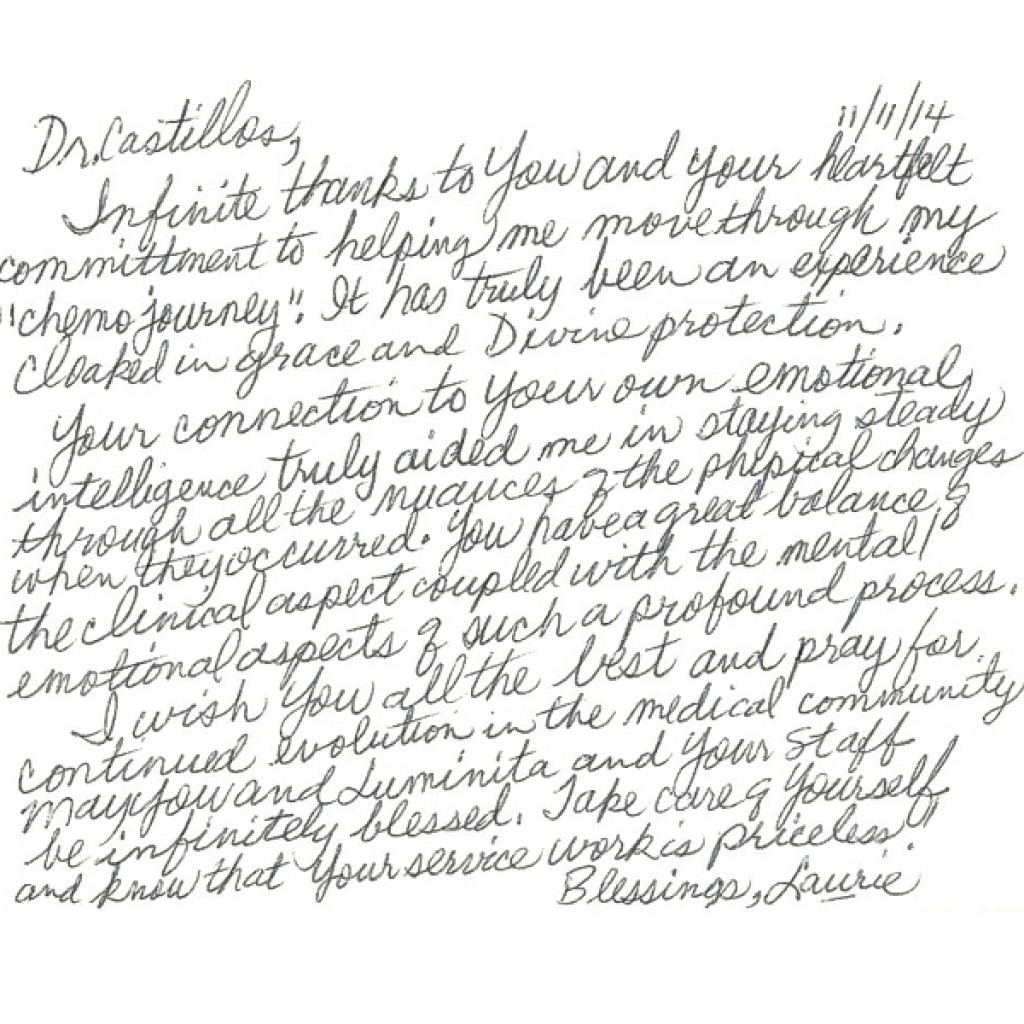 11/11/14
Dr. Castillos,
Infinite thanks to You and Your heartfelt
committment to helping me move through my
"chemo journey". It has truly been an experience
cloaked in grace and Divine protection.
Your connection to Your own emotional
intelligence truly aided me in staying steady
through all the nuances of the physical changes
when they occurred. You have a great balance of
the clinical aspect coupled with the mental/
emotional aspects of such a profound process.
I wish You all the best and pray for
continued evolution in the medical community
May You and Luminita and Your Staff
be infinitely blessed. Take care of Yourself
and know that Your service work is priceless!
Blessings, Laurie